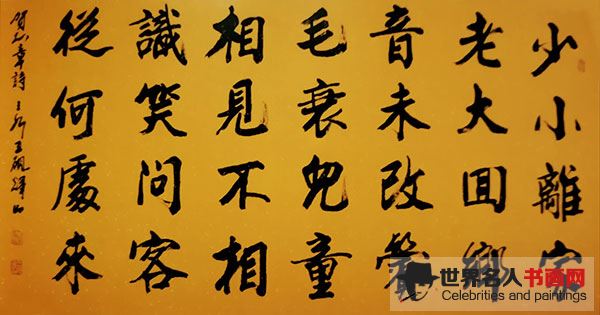 少小離家
老大回鄉
音未改鬢
毛衰兒童
相見不相
識笑問客
從何處來
賀知章詩
世界名人书画网
Celebrities and paintings